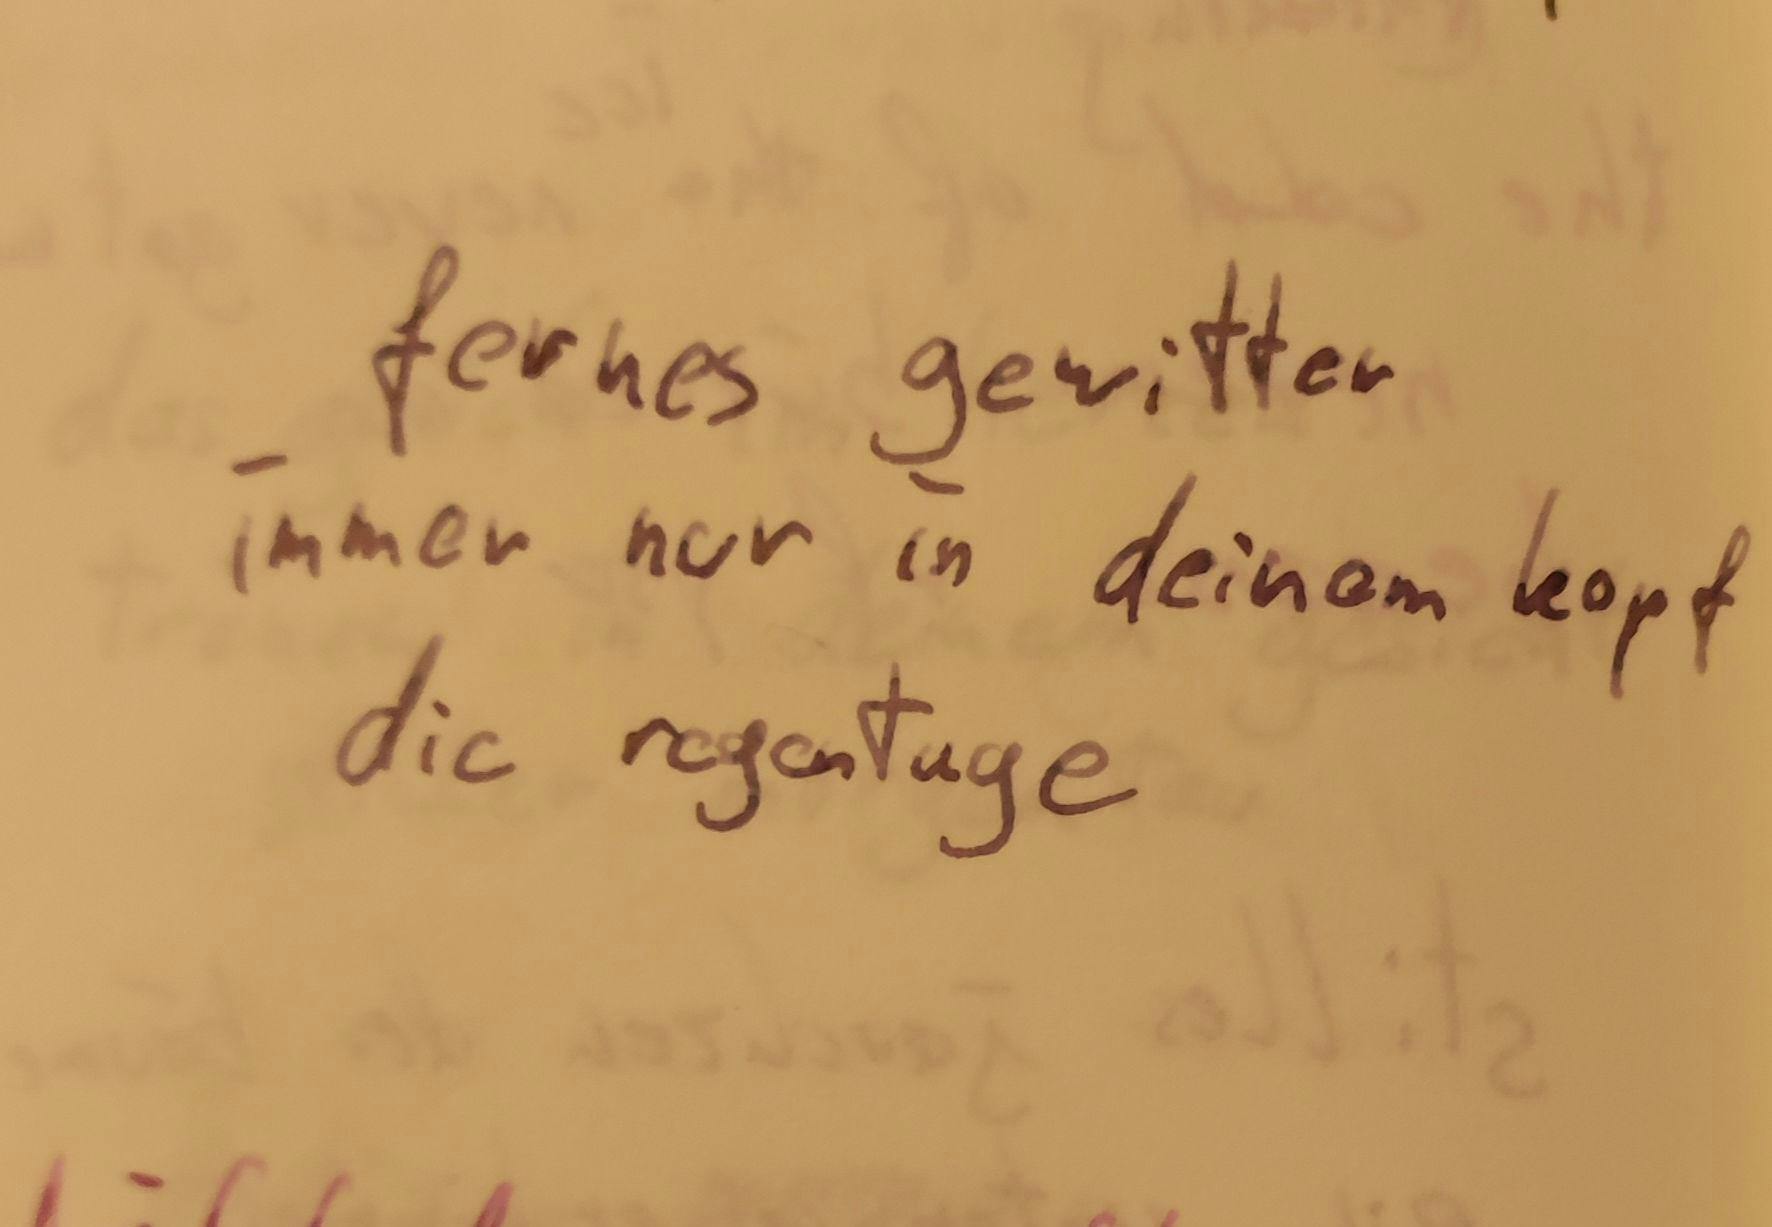 fernes gewitter
immer nur in deinem kopf
die regentage